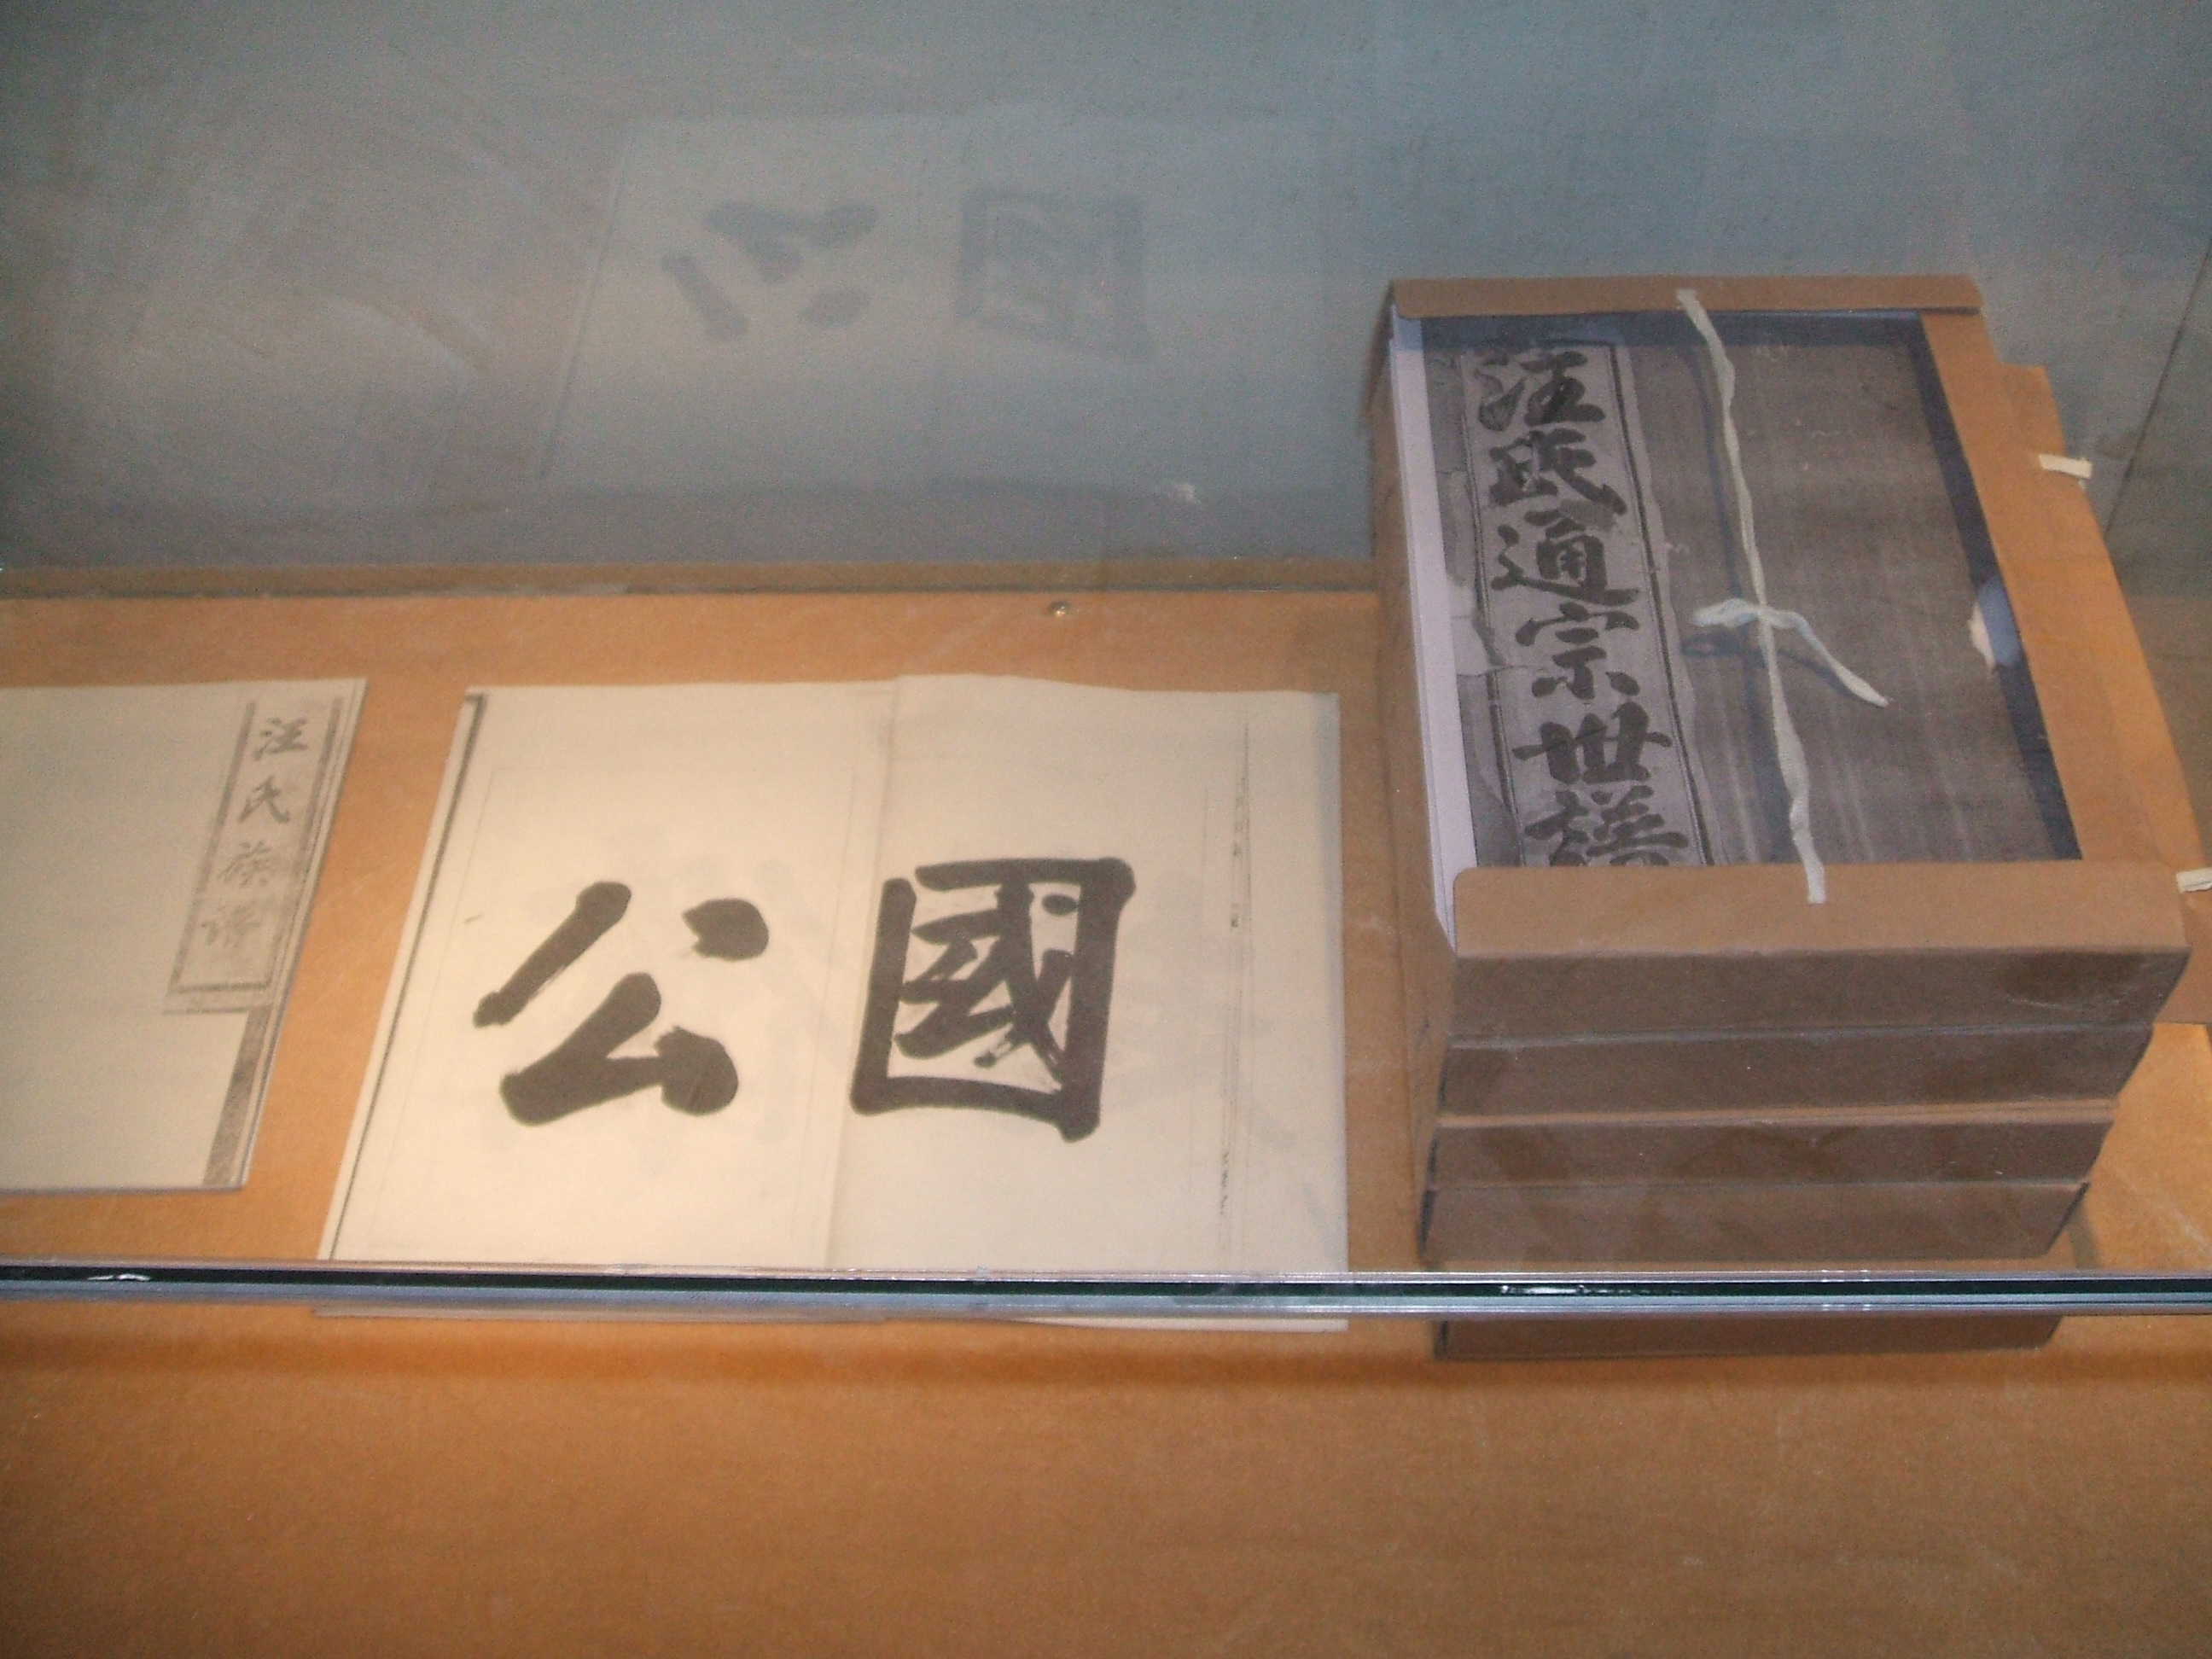 汪氏族譜
國公
汪氏通宗世譜